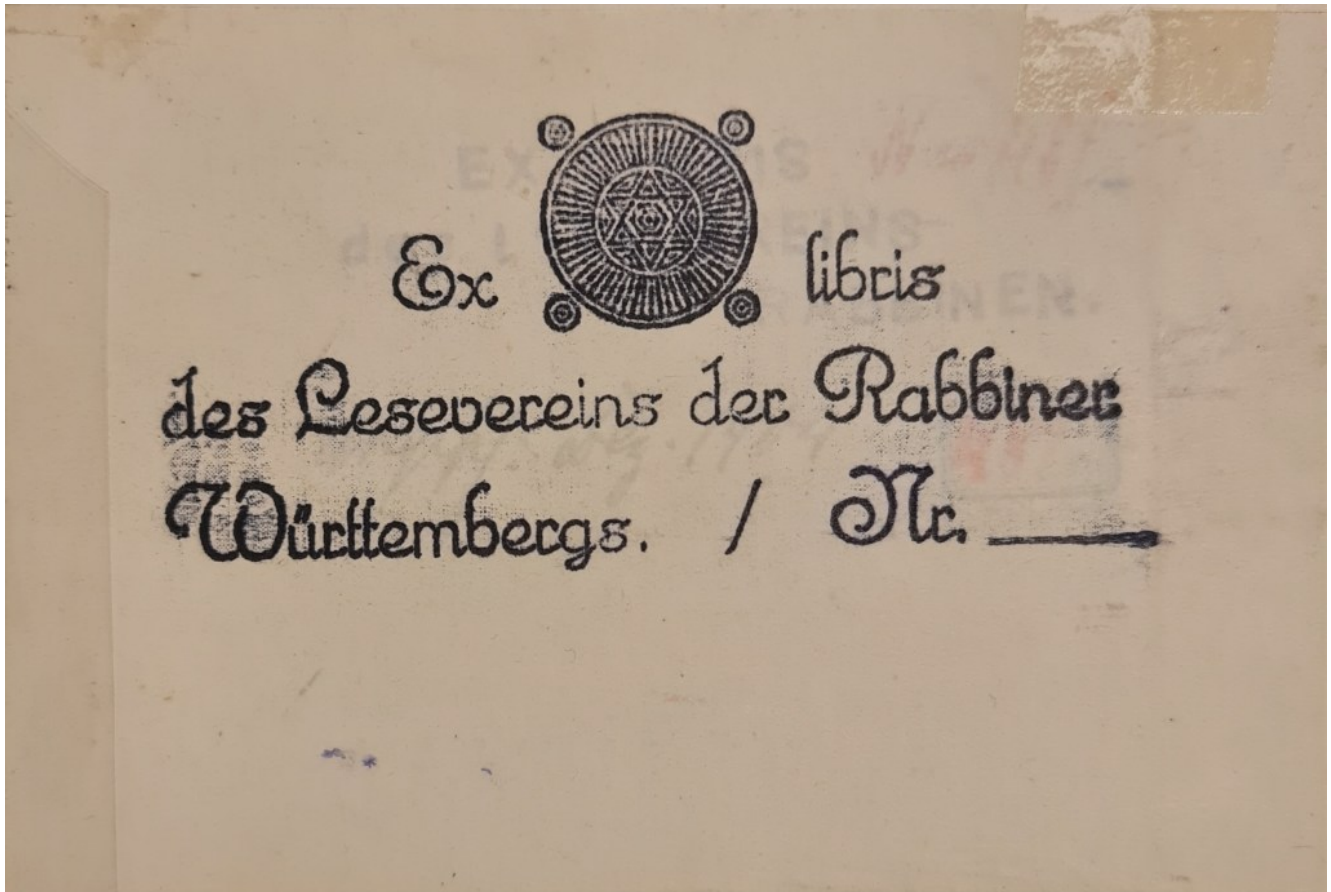 Ex libris
des Lesevereins der Rabbiner
Württembergs. / Nr.